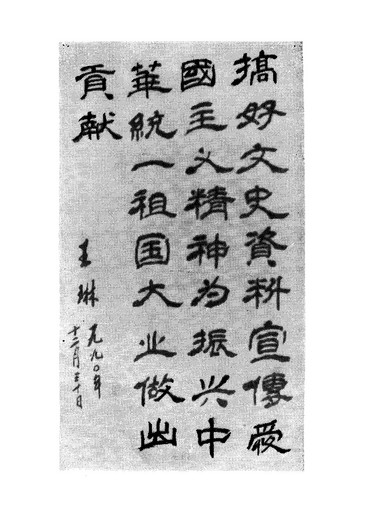 搞好文史資料宣傳愛
國主义精神为振兴中
華統一祖国大业做出
貢献
王琳
一九九〇年
十二月三十日